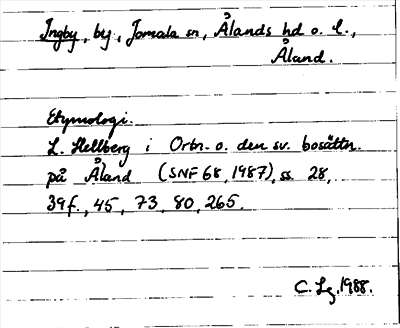 Ingby, by, Jomala sn, Ålands hd o. l.,
Åland.
Etymologi.
L. Hellberg i Ortn. o. den sv. bosättn.
på Åland (SNF 68, 1987), ss. 28,
39f., 45, 73, 80, 265.
C. Lg. 1988.